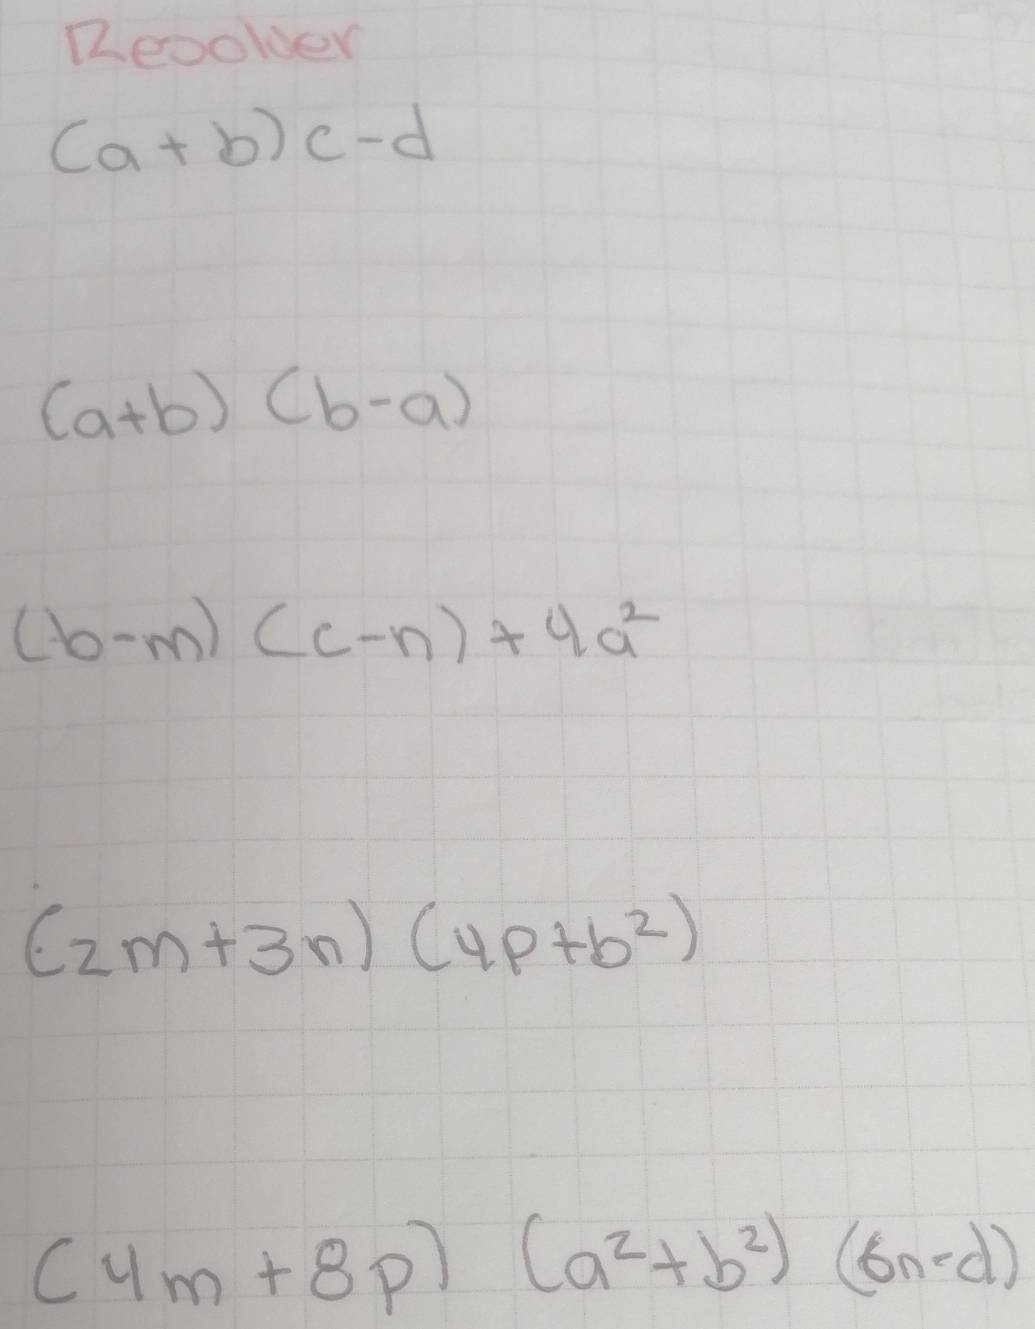 Resolver
(a+b)c-d
(a+b) (b-a)
(b-m) (c-n) + 4a²
(2m+3n) (4p+b²)
(4m+8p) (a²+b²) (6n-d)